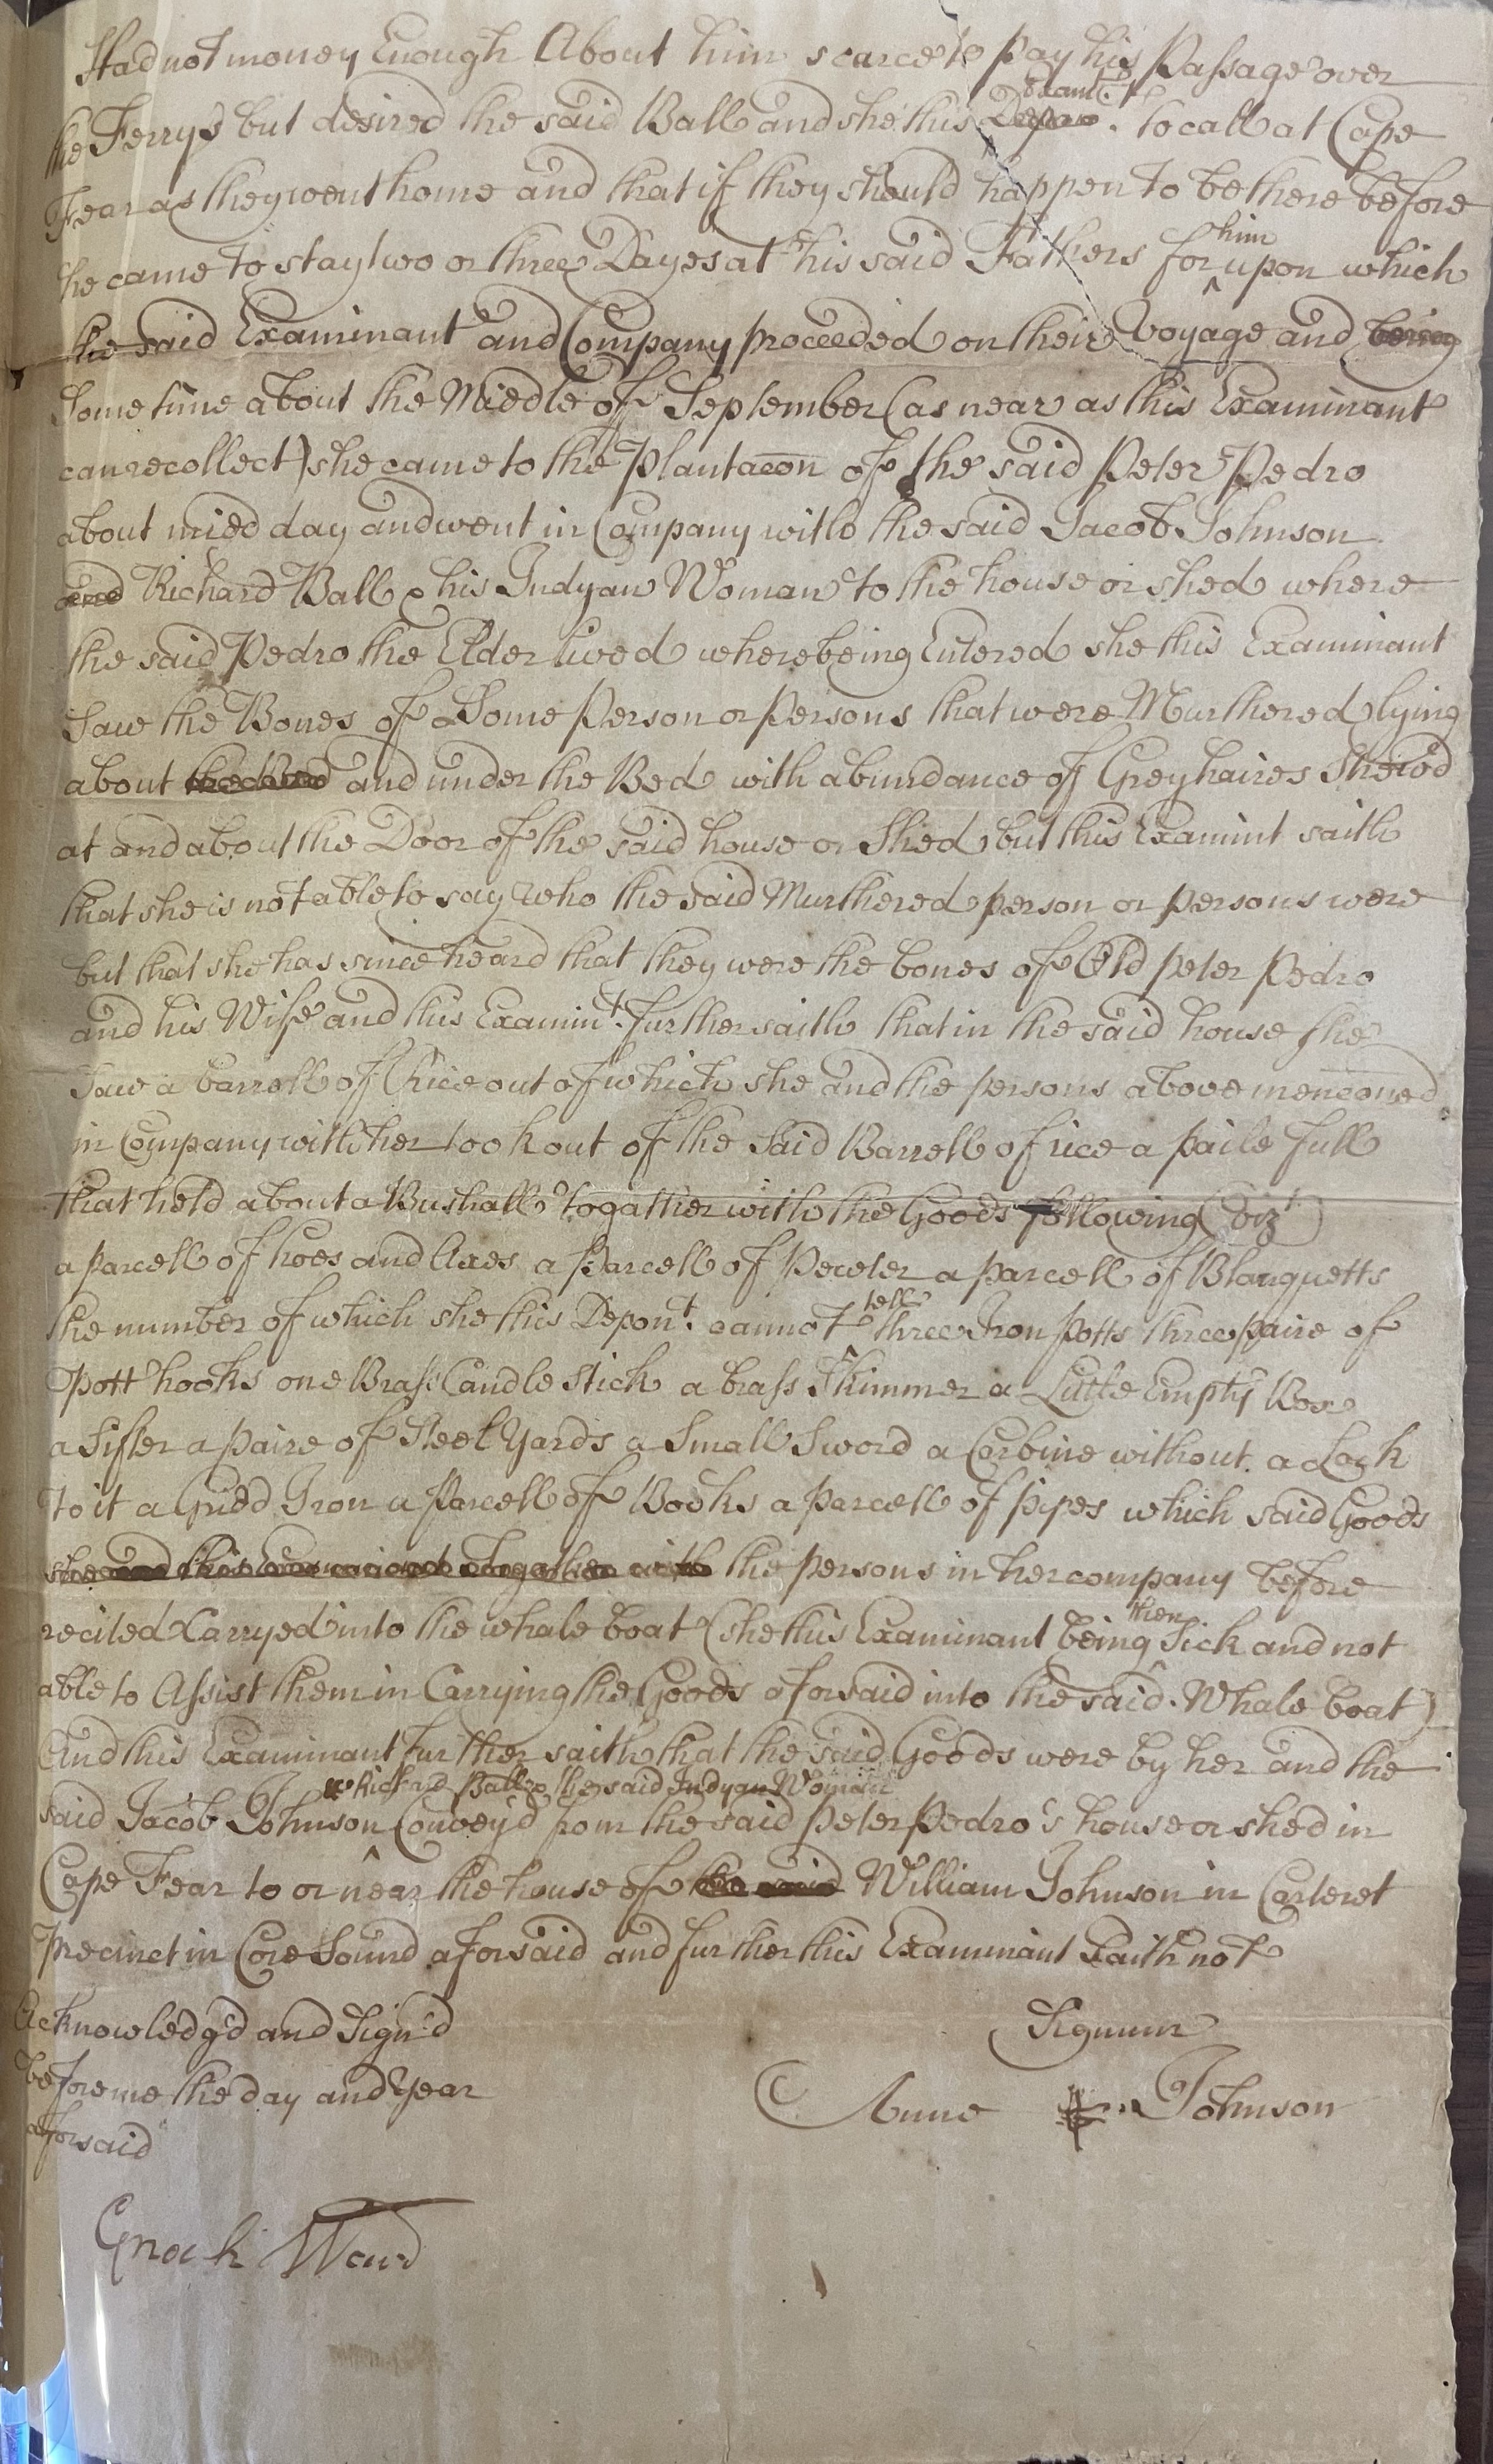 Had not money Enough About him scarce to pay his Passage over
the Ferrys but desired the said Ball and she this Examt. to call at Cape
Fear as they went home and that if they should happen to be there before
he came to stay two or three Dayes at his said Fathers for him upon which
the said Examinant and Company proceeded on their Voyage and being
Some time about the Middle of September (as near as this Examinant
can recollect) she came to the Plantacon of the said Peter Pedro
about midd day and went in Company with the said Jacob Johnson
and Richard Ball & his Indyan Woman to the house or shed where
the said Pedro the Elder lived where being Entered she this Examinant
Saw the Bones of Some Person or Persons that were Murthered lying
about and under the Bed with abundance of Grey haires Shew'd
at and about the Door of the said house or Shed but this Examint saith
that she is not able to say who the said Murthered person or persons were
but that she has since heard that they were the bones of Old Peter Pedro
and his Wife and this Examint. further saith that in the said house she
Saw a barrell of Rice out of which she and the persons above menconed
in Company with her took out of the Said Barrell of rice a paile full
that held about a Bushall togather with the Goods following (Viz)
a parcell of hoes and Axes a parcell of Pewter a parcell of Blanquetts
the number of which she this Depont. cannot tell three Iron Potts three paire of
Pott hooks one Brass Candle stick a brass Skimmer a Little Empty Box
a Sifter a paire of Steel Yards a Small Sword a Carbine without a Lock
to it a Gridd Iron a Parcell of Books a parcell of pipes which said Goods
she and this Examinant togather with the persons in her company before
recited Carryed into the whale boat (she this Examinant being then Sick and not
able to Assist them in Carrying the Goods aforsaid into the said Whale boat)
And this Examinant further saith that the said Goods were by her and the
said Jacob Johnson Richard Ball & the said Indyan Woman Convey'd from the said Peter Pedro's house or shed in
Cape Fear to or near the house of the said William Johnson in Carteret
Precinct in Core Sound aforsaid and further this Examinant Saith not
Acknowledg'd and Sign'd
before me the day and Year
aforsaid
Signum
Anne Johnson
Enoch Ward